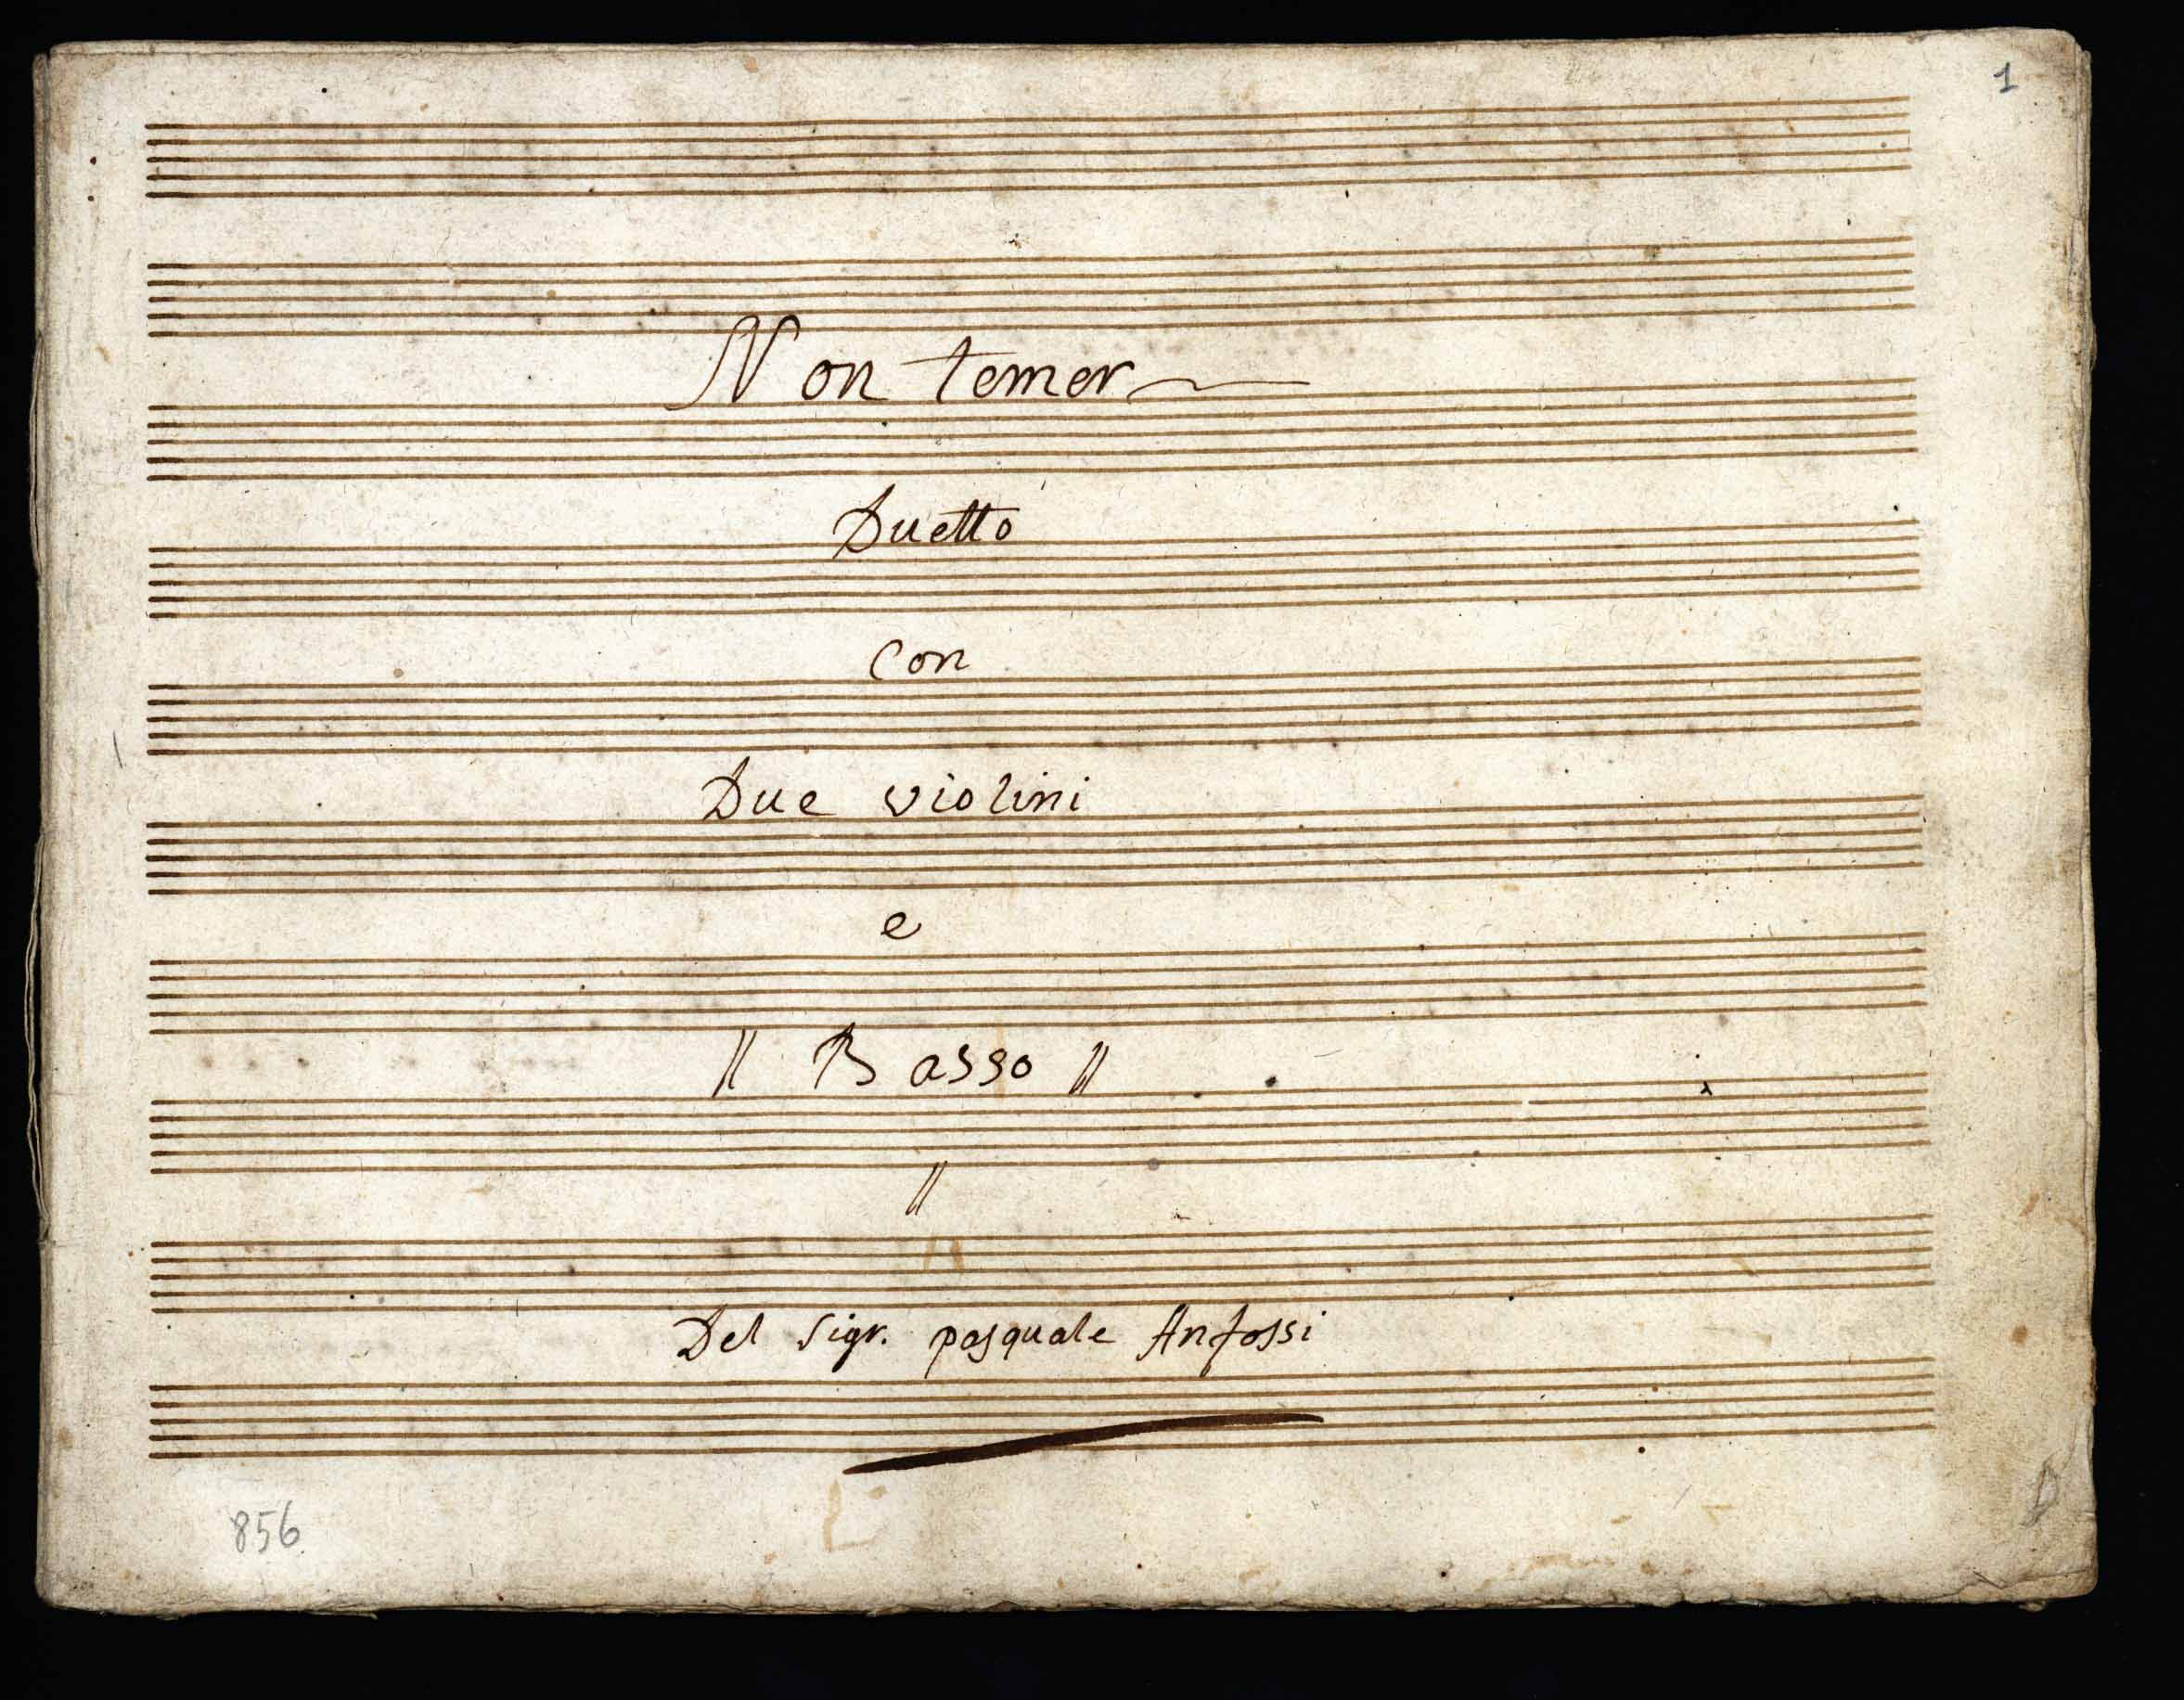 1
Non temer
Duetto
con
Due violini
e
|| Basso ||
||
Del Sigr. pasquale Anfossi
856
D